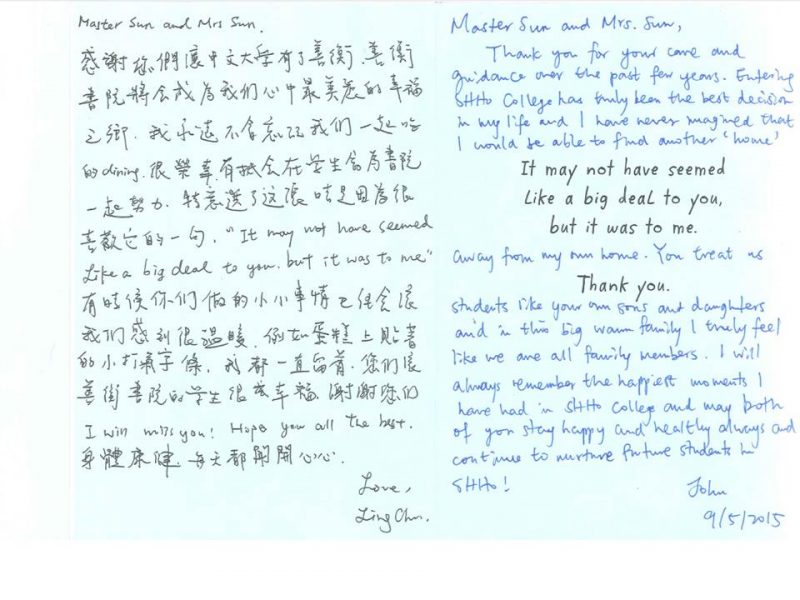 Master Sun and Mrs Sun.
感謝你們讓中文大学有了善衡.善衡
書院將会成為我们心中最美麗的幸福
之鄉.我永遠不會忘記我们一起吃
的dining.很榮幸有机会在学生会為書院
一起努力.特意選了这張咭是因為很
喜歡它的一句."It may not have seemed
Like a big deal to you. but it was to me"
有時候你们做的小小事情已经会讓
我们感到很温暖.例如蛋糕上貼著
的小打氣字條,我都一直留着.您们讓
善衡書院的学生很幸福.謝謝您们
I will miss you! Hope you all the best.
身體康健.每天都開開心心.
Love,
Ling Chu.
Master Sun and Mrs. Sun,
Thank you for your care and
guidance over the past few years. Entering
SHHo College has truly been the best decision
in my life and I have never imagined that
I would be able to find another 'home'
It may not have seemed
Like a big deal to you,
but it was to me.
away from my own home. You treat us
Thank you.
students like your own sons and daughters
and in this big warm family I truly feel
like we are all family members. I will
always remember the happiest moments I
have had in SHHo College and may both
of you stay happy and healthy always and
continue to nurture future students in
SHHo!
John
9/5/2015